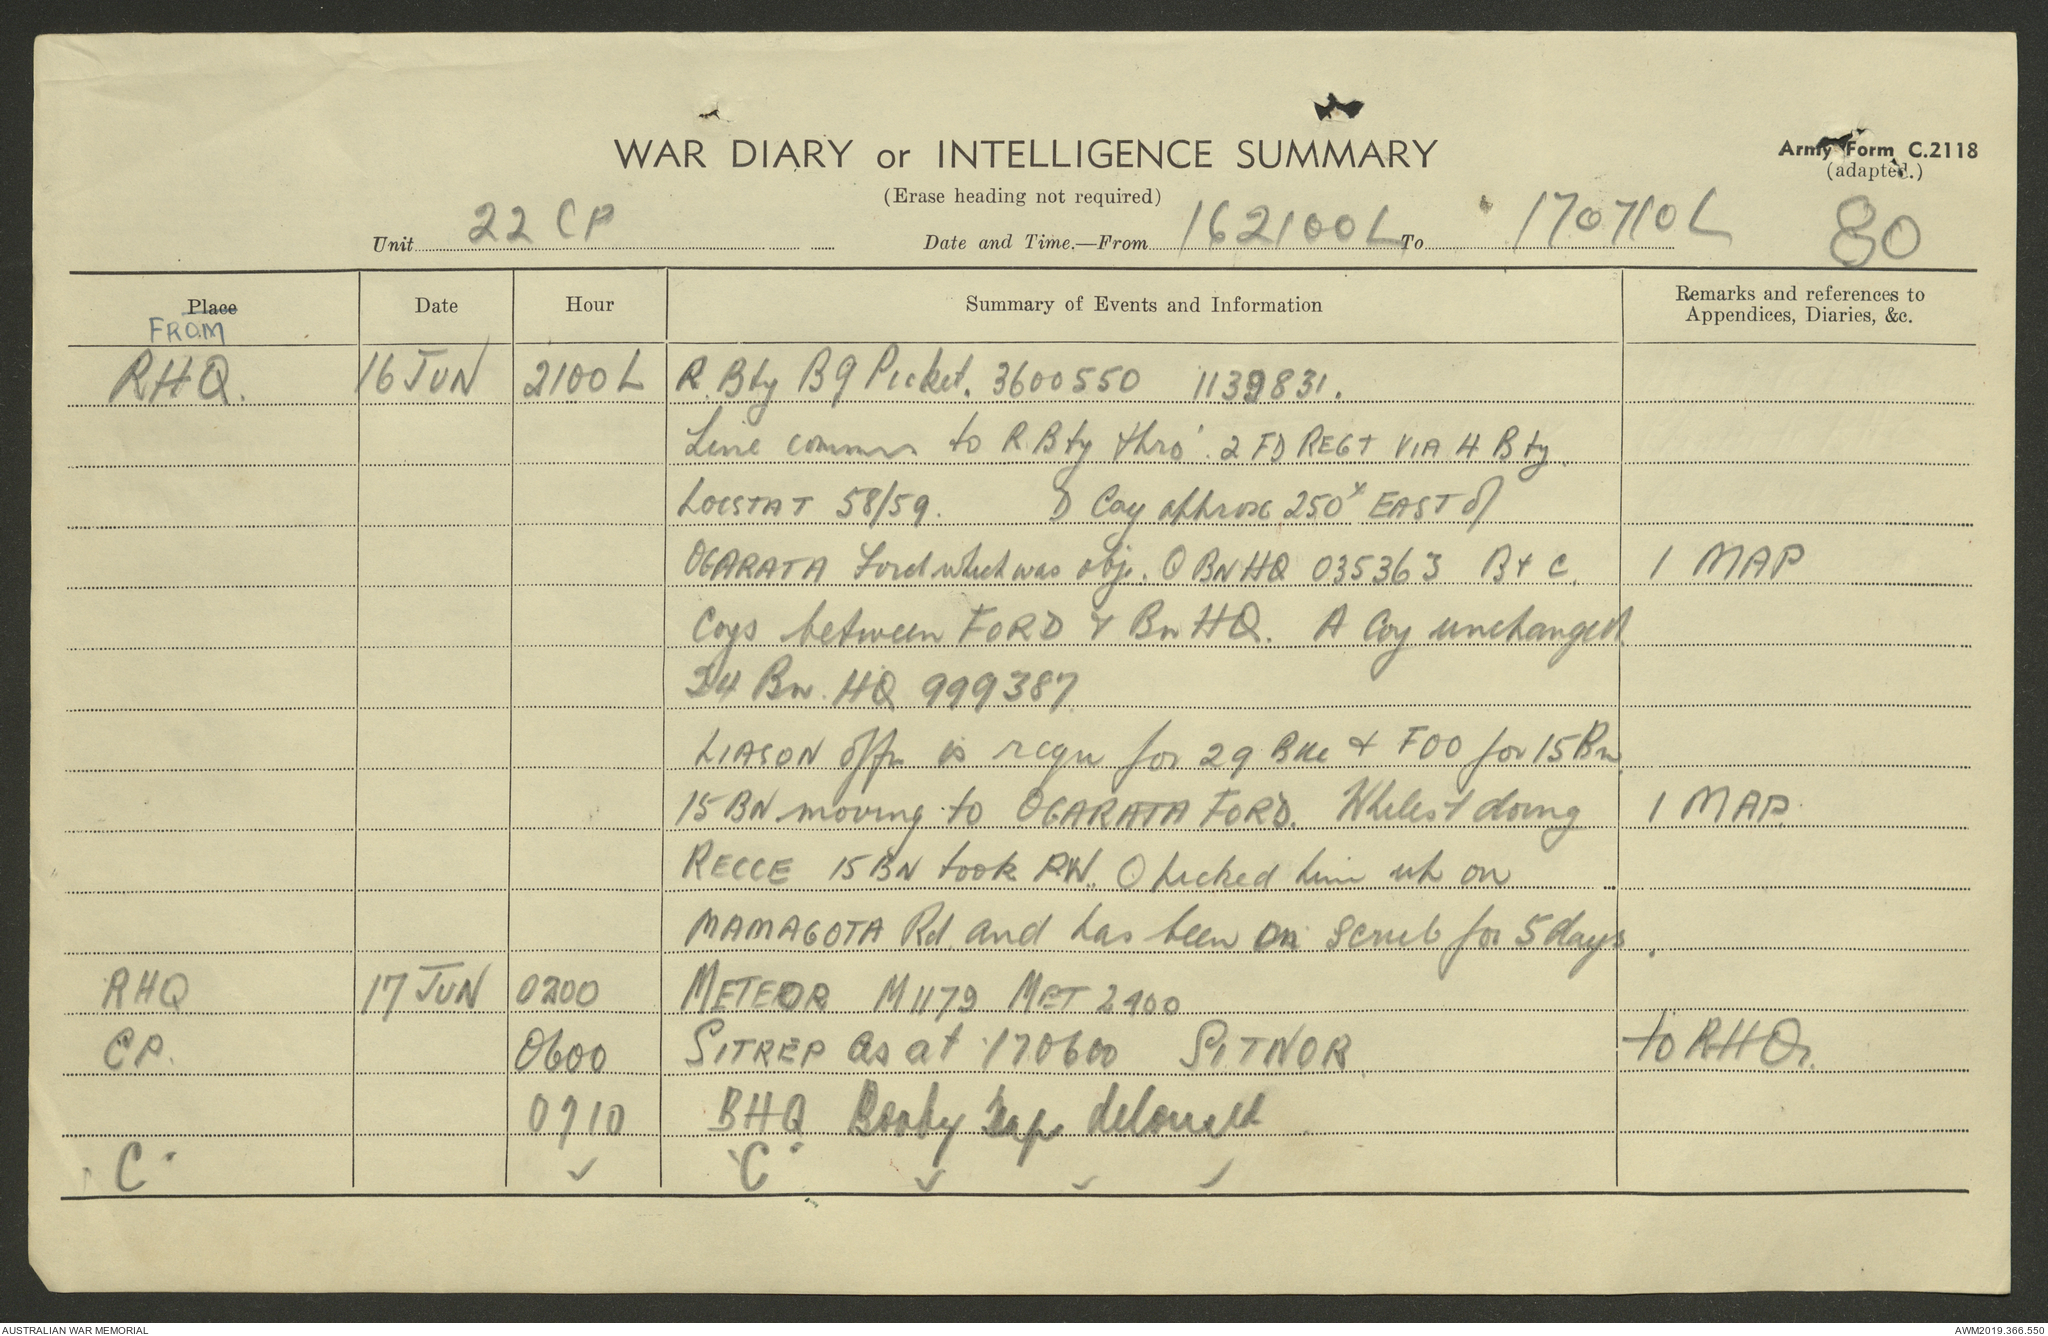 WAR DIARY or INTELLIGENCE SUMMARY
Army Form C.2118
(adapted.)
(Erase heading not required)
80
Unit 22 CP Date and Time.—From 162100L To 170710L
Place Date Hour Summary of Events and Information Remarks and references to Appendices, Diaries, &c.
FROM
RHQ. 16 JUN 2100L R. Bty B9 Picket. 3600550 1139831.
Line comms to R Bty thro' 2 FD REGT VIA H Bty.
LOCSTAT 58/59. D Coy approx 250x EAST of
OGARATA Ford which was obj. O BN HQ 035363 B + C. 1 MAP
Coys between FORD & Bn HQ. A Coy unchanged
24 Bn. HQ 999387
LIASON offr is requ for 29 Bde + FOO for 15 Bn.
15 BN moving to OGARATA FORD. Whilest doing 1 MAP.
RECCE 15 BN took PW. O picked him up on
MAMAGOTA Rd. and has been in scrub for 5 days.
RHQ 17 JUN 0200 METEOR M1179 MET 2400
CP. 0600 SITREP as at 170600 SITNOR to RHQ.
0710 BHQ Booby traps deloused
"C" ✓ "C" ✓ ✓ ✓
AUSTRALIAN WAR MEMORIAL
AWM2019.366.550